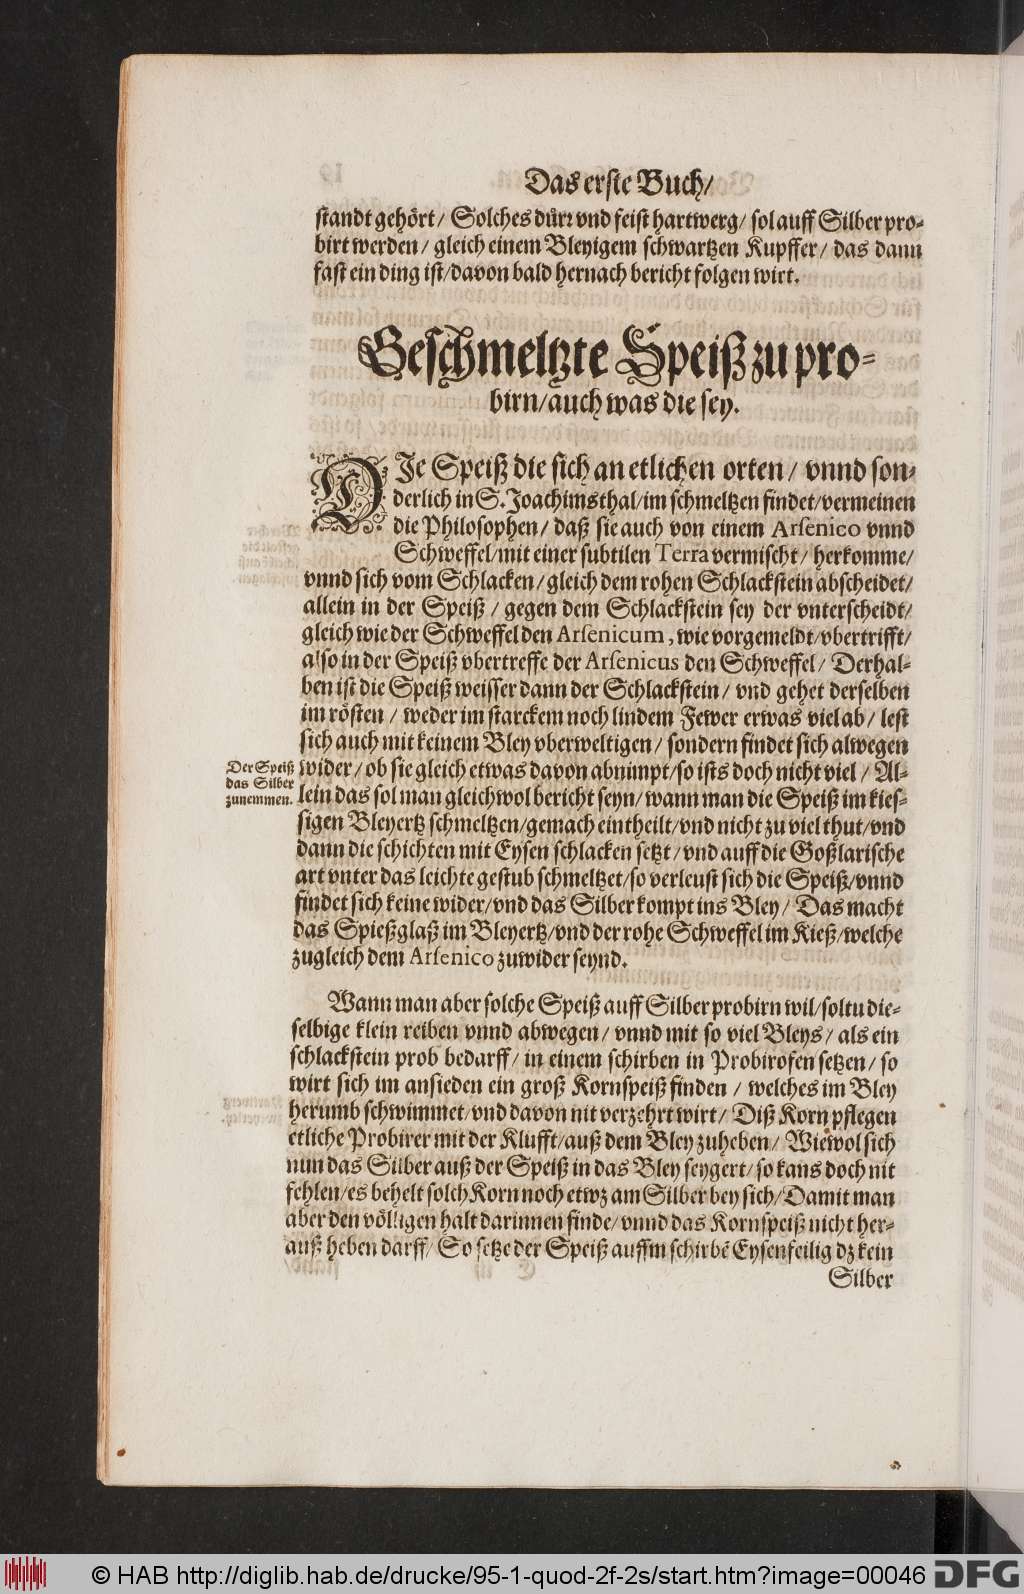 Das erste Buch/
standt gehört/ Solches dürr vnd feist hartwerg/ sol auff Silber pro-
birt werden/ gleich einem Bleyigem schwartzen Kupffer/ das dann
fast ein ding ist/ davon bald hernach bericht folgen wirt.
Geschmeltzte Speiß zu pro-
birn/ auch was die sey.
DJe Speiß die sich an etlichen orten/ vnnd son-
derlich in S. Joachimsthal/ im schmeltzen findet/ vermeinen
die Philosophen/ daß sie auch von einem Arsenico vnnd
Schweffel/ mit einer subtilen Terra vermischt/ herkomme/
vnnd sich vom Schlacken/ gleich dem rohen Schlackstein abscheidet/
allein in der Speiß/ gegen dem Schlackstein sey der vnterscheidt/
gleich wie der Schweffel den Arsenicum, wie vorgemeldt/ vbertrifft/
also in der Speiß vbertreffe der Arsenicus den Schweffel/ Derhal-
ben ist die Speiß weisser dann der Schlackstein/ vnd gehet derselben
im rösten/ weder im starckem noch lindem Fewer erwas viel ab/ lest
sich auch mit keinem Bley vberweltigen/ sondern findet sich alwegen
Der Speiß
das Silber
zunemmen.
wider/ ob sie gleich etwas davon abnimpt/ so ists doch nicht viel/ Al-
lein das sol man gleichwol bericht seyn/ wann man die Speiß im kies-
sigen Bleyertz schmeltzen/ gemach eintheilt/ vnd nicht zu viel thut/ vnd
dann die schichten mit Eysen schlacken setzt/ vnd auff die Goßlarische
art vnter das leichte gestub schmeltzet/ so verleust sich die Speiß/ vnnd
findet sich keine wider/ vnd das Silber kompt ins Bley/ Das macht
das Spießglaß im Bleyertz/ vnd der rohe Schweffel im Kieß/ welche
zugleich dem Arsenico zuwider seynd.
Wann man aber solche Speiß auff Silber probirn wil/ soltu die-
selbige klein reiben vnnd abwegen/ vnnd mit so viel Bleys/ als ein
schlackstein prob bedarff/ in einem schirben in Probirofen setzen/ so
wirt sich im ansieden ein groß Kornspeiß finden/ welches im Bley
herumb schwimmet/ vnd davon nit verzehrt wirt/ Diß Korn pflegen
etliche Probirer mit der Klufft/ auß dem Bley zuheben/ Wiewol sich
nun das Silber auß der Speiß in das Bley seygert/ so kans doch nit
fehlen/ es behelt solch Korn noch etwz am Silber bey sich/ Damit man
aber den völligen halt darinnen finde/ vnnd das Kornspeiß nicht her-
auß heben darff/ So setze der Speiß auffm schirbē Eysenfeilig dz kein
Silber
© HAB http://diglib.hab.de/drucke/95-1-quod-2f-2s/start.htm?image=00046
DFG